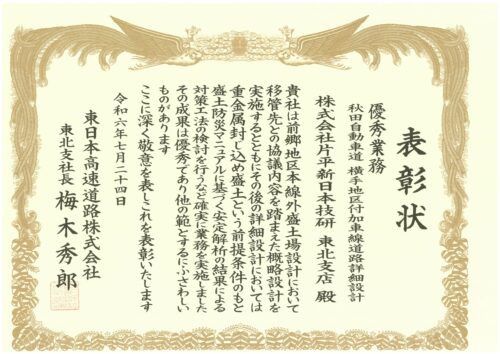 表彰状
優秀業務
秋田自動車道 横手地区付加車線道路詳細設計
株式会社片平新日本技研 東北支店 殿
貴社は前郷地区本線外盛土場設計において
移管先との協議内容を踏まえた概略設計を
実施するとともにその後の詳細設計においては
重金属封じ込め盛土という前提条件のもと
盛土防災マニュアルに基づく安定解析の結果による
対策工法の検討を行うなど確実に業務を実施しました
その成果は優秀であり他の範とするにふさわしい
ものがあります
ここに深く敬意を表しこれを表彰いたします
令和六年七月二十四日
東日本高速道路株式会社
東北支社長 梅木秀郎